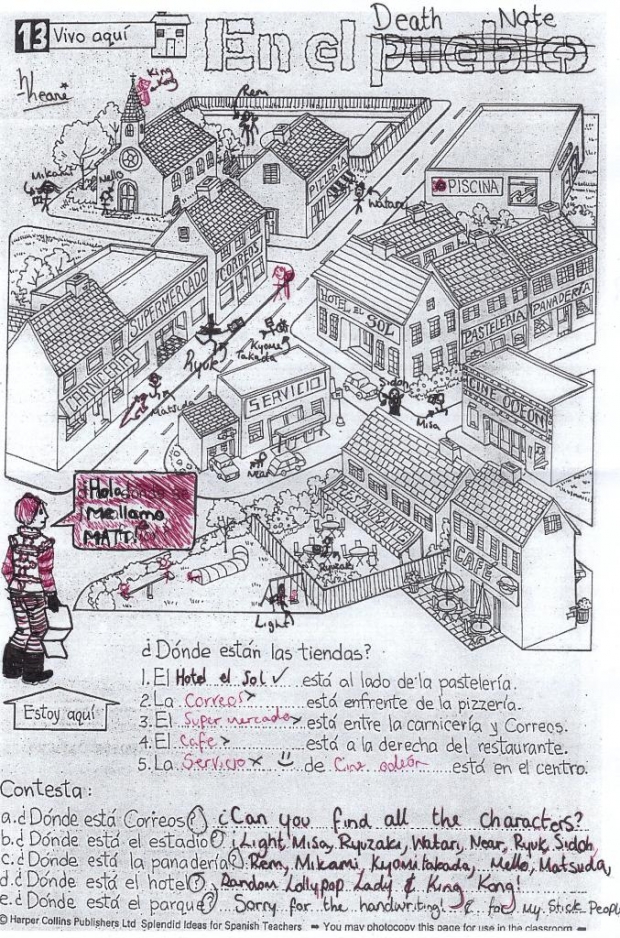 13 Vivo aquí
Death Note
En el pueblo
Kheani
King Kong
Rem
Mikami
Mello
PIZZERIA
Watari
PISCINA
CORREOS
SUPERMERCADO
HOTEL EL SOL
PASTELERIA
PANADERIA
Ryuk
Kyomi Takada
CARNICERIA
Matsuda
SERVICIO
Sidoh
Misa
CINE ODEON
Near
Hola
Me llamo
MATT!
RESTAURANTE
Ryuzaki
CAFE
Light
Estoy aquí
¿Dónde están las tiendas?
1. El Hotel el Sol ✓ está al lado de la pastelería.
2. La Correos está enfrente de la pizzería.
3. El Supermercado está entre la carnicería y Correos.
4. El Cafe está a la derecha del restaurante.
5. La Servicio x de Cine odeón está en el centro.
Contesta:
a. ¿Dónde está Correos? ¿Can you find all the characters?
b. ¿Dónde está el estadio? ¡Light, Misa, Ryuzaki, Watari, Near, Ryuk, Sidoh,
c. ¿Dónde está la panadería? Rem, Mikami, Kyomi takada, Mello, Matsuda,
d. ¿Dónde está el hotel? Random Lollypop Lady & King Kong!
e. ¿Dónde está el parque? Sorry for the handwriting! & for my Stick People
© Harper Collins Publishers Ltd Splendid Ideas for Spanish Teachers ➡ You may photocopy this page for use in the classroom ⬅